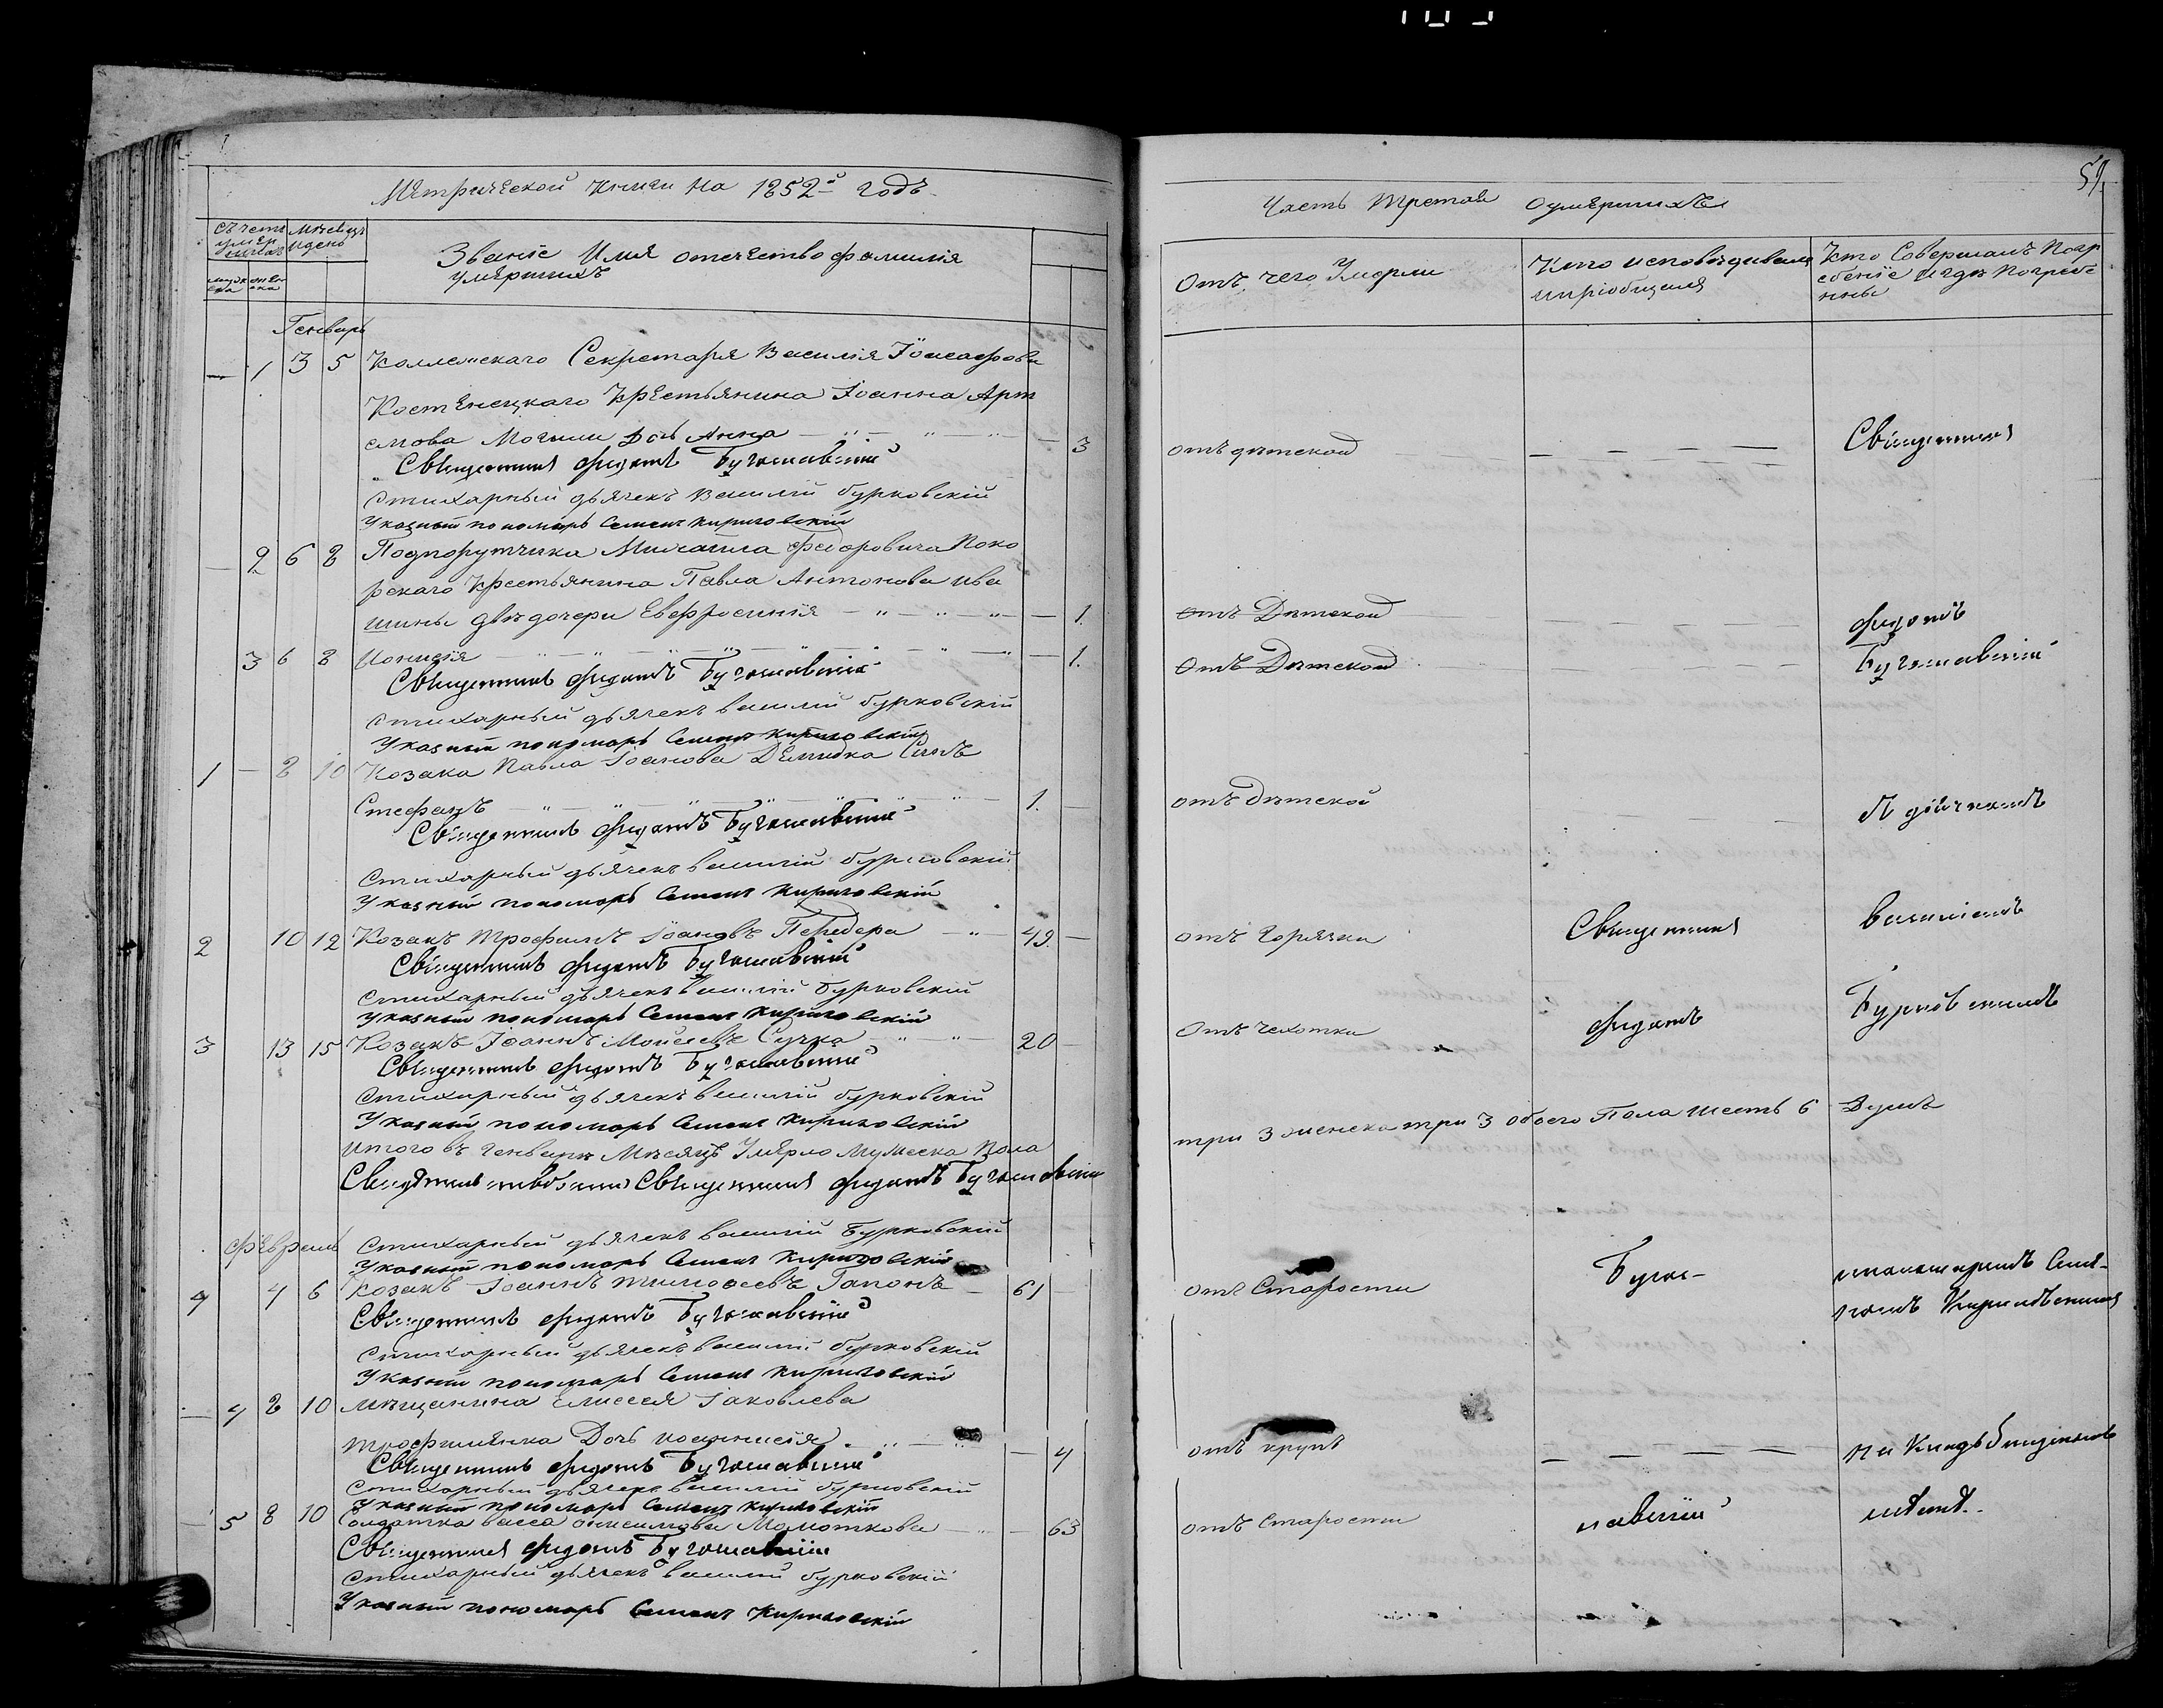 Метрической книги на 1852й годъ
Счетъ умер шихъ
Мѣсяцъ и день
Званіе Имя отечество фамилія
умершихъ
мужеска
женска
Генварь
— 1 3 5 Коллежскаго Секретаря Василія Іоасафови
Костенецкаго Крестьянина Іоанна Арт
емова Могили Дочь Анна — 3
Священникъ Федотъ
Стихарный дьячекъ Василій Бурковскій
Указный пономарь Семенъ Кириловскій
— 2 6 8 Подпоручика Михаила Федоровича Поко
рскаго Крестьянина Павла Антонова Ива
шины двѣ дочери Евфросинія — 1.
3 6 8 — 1.
Священникъ Федотъ
Стихарный дьячекъ Василій Бурковскій
Указный пономарь Семенъ Кириловскій
1 — 8 10 Козака Павла Іоанова Демидка Сынъ
Стефанъ 1. —
Священникъ Федотъ
Стихарный дьячекъ Василій Бурковскій
Указный пономарь Семенъ Кириловскій
2 10 12 Козакъ Трофимъ Іоановъ Передера 49. —
Священникъ Федотъ
Стихарный дьячекъ Василій Бурковскій
Указный пономарь Семенъ Кириловскій
3 13 15 Козакъ Іоаннъ Мойсеевъ Сучка 20 —
Священникъ Федотъ
Стихарный дьячекъ Василій Бурковскій
Указный пономарь Семенъ Кириловскій
Итого въ генварѣ Мѣсяцѣ Умерло Мужеска Пола
Священникъ Федотъ
Февраль
Стихарный дьячекъ Василій Бурковскій
Указный пономарь Семенъ Кириловскій
4 4 6 Козакъ Іоаннъ Тимофеевъ Гапонъ — 61 —
Священникъ Федотъ
Стихарный дьячекъ Василій Бурковскій
Указный пономарь Семенъ Кириловскій
— 4 8 10 Мѣщанина Елисея Іаковлева
Дочь — 4
Священникъ Федотъ
Стихарный дьячекъ Василій Бурковскій
Указный пономарь Семенъ Кириловскій
— 5 8 10 Солдатка Васса Момоткова — 63
Священникъ Федотъ
Стихарный дьячекъ Василій Бурковскій
Указный пономарь Семенъ Кириловскій
59
Часть Третая О умершихъ
Отъ чего Умерли
Кто исповѣдивалъ
и пріобщалъ
Кто Совершалъ Погр
ебеніе и гдѣ Погребе
нны
отъ дѣтской
Священникъ
отъ Дѣтской
Федотъ
отъ Дѣтской
отъ дѣтской
съ дьячкомъ
отъ горячки
Священникъ
Василіемъ
отъ чехотки
Федотъ
Бурковскимъ
три 3 женска три 3 обоего Пола шесть 6 Душъ
отъ Старости
и пономаремъ Семе-
номъ Кириловскимъ
отъ крупъ
на Кладбищенскомъ
отъ Старости
мѣстѣ.